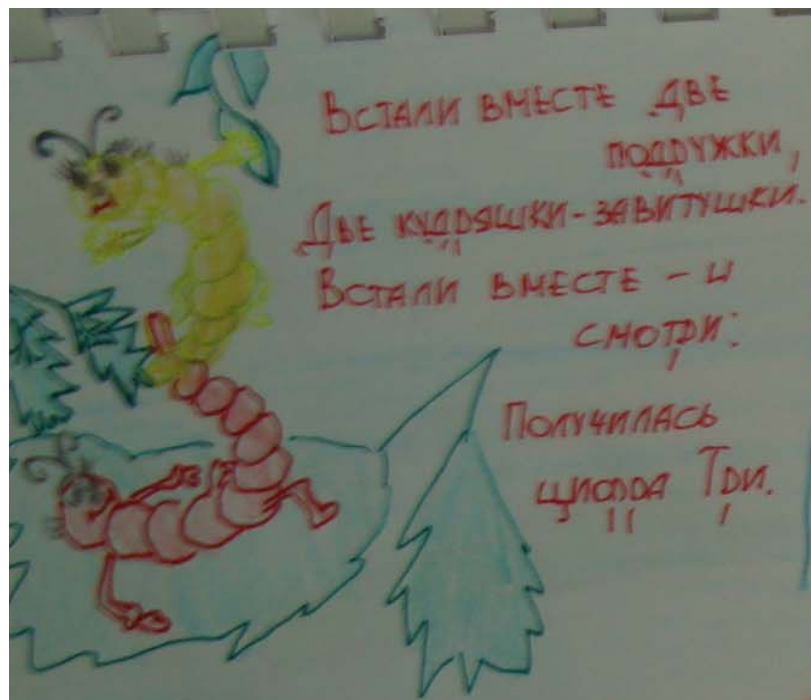 Встали вместе две
подружки,
Две кудряшки-завитушки.
Встали вместе - и
смотри:
Получилась
цифра Три.